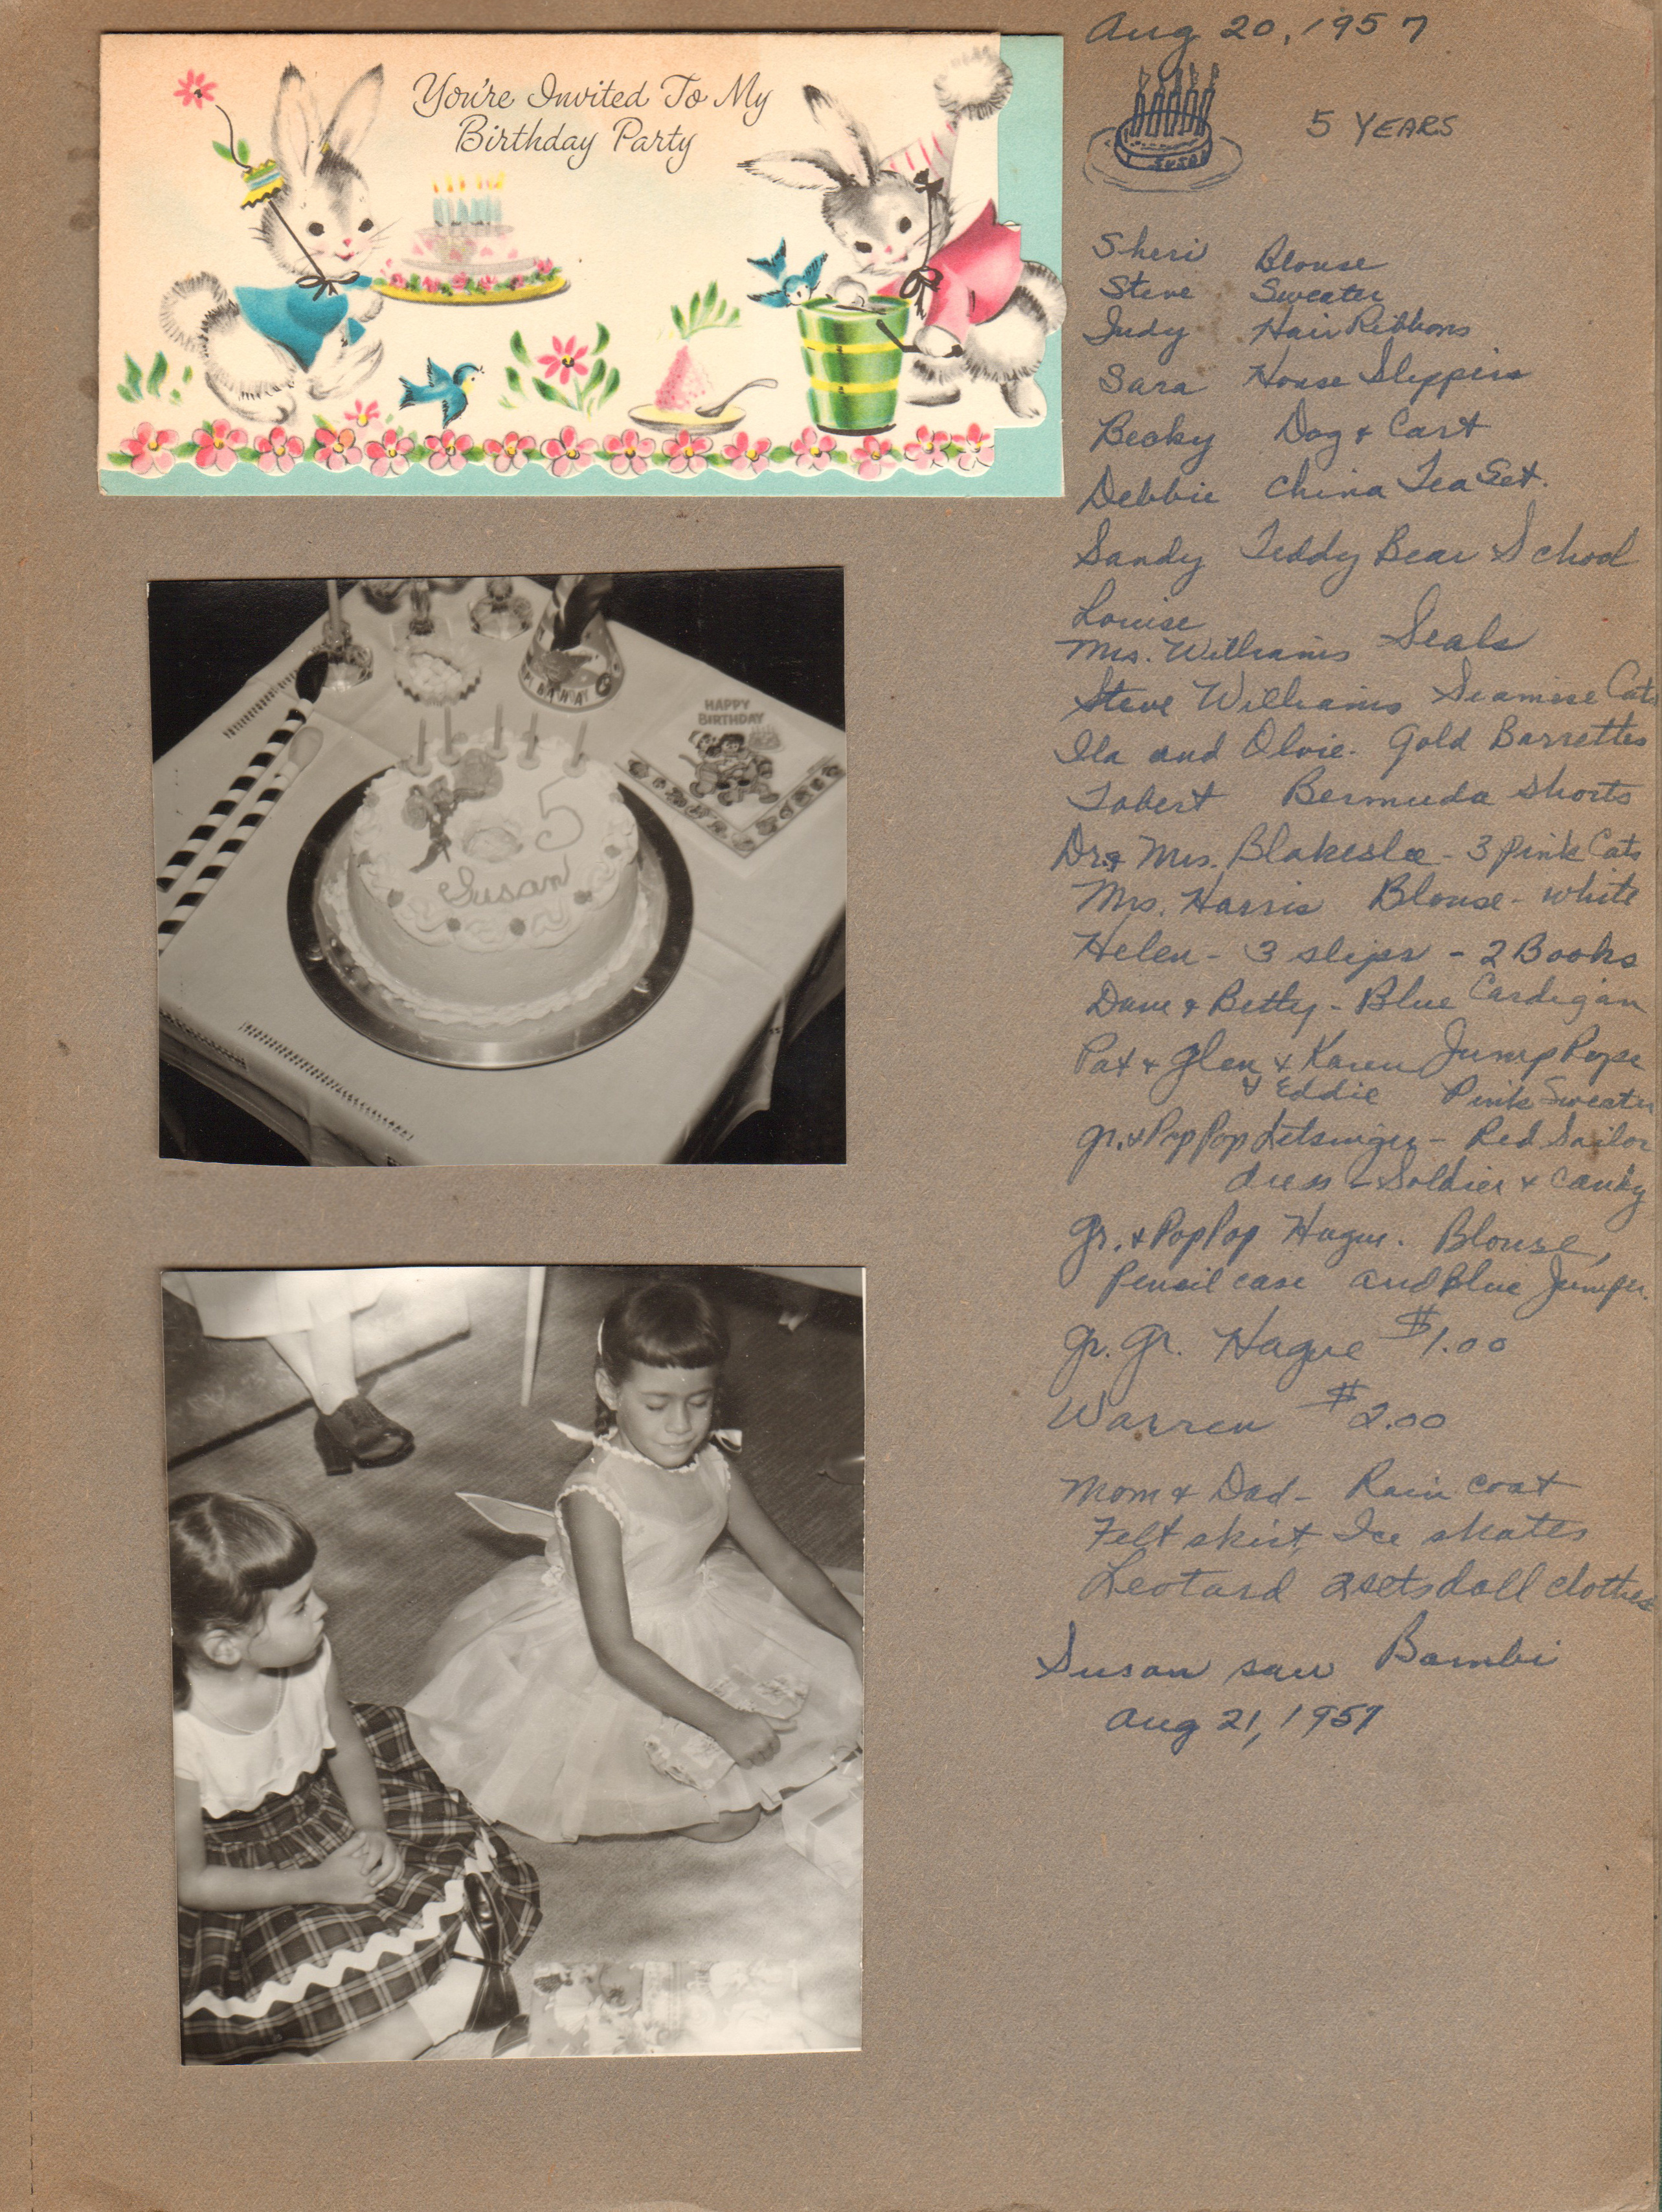 You're Invited To My
Birthday Party
Aug 20, 1957
5 YEARS
SUSAN
Sheri Blouse
Steve Sweater
Judy Hair Ribbons
Sara House Slippers
Becky Dog & Cart
Debbie China Tea Set.
Sandy Teddy Bear School
Louise
Mrs. Williams Seals
Steve Williams Siamise Cats
Ila and Olvie. Gold Barrettes
Tobert Bermuda shorts
Dr. & Mrs. Blakeslee - 3 pink Cats
Mrs. Harris Blouse - white
Helen - 3 slips - 2 Books
Dave & Betty - Blue Cardigan
Pat & Glen & Karen Jump Rope
& Eddie Pink Sweater
Gr. & PopPop Letsinger - Red Sailor
dress - Soldier & Candy
Gr. & PopPop Hague. Blouse,
Pencil case and Blue Jumper.
Gr. Gr. Hague $1.00
Warren $2.00
Mom & Dad - Rain coat
Felt skirt, Ice skates
Leotard 2 sets doll clothes
Susan saw Bambi
Aug 21, 1957
HAPPY
BIRTHDAY
5
Susan